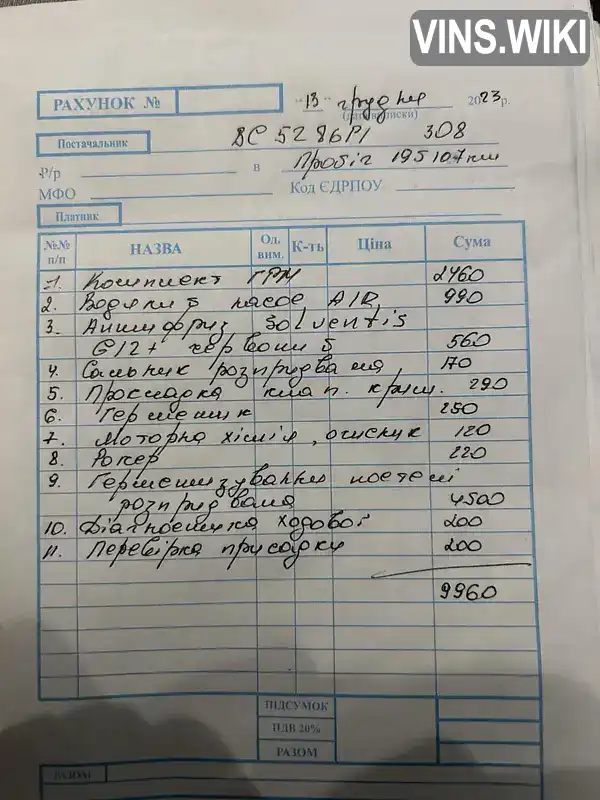 VINS.WIKI
РАХУНОК № "13" грудня 2023р.
(дата виписки)
Постачальник ВС 5286РІ 308
Р/р в Пробіг 195107км
МФО Код ЄДРПОУ
Платник
№№ п/п НАЗВА Од. вим. К-ть Ціна Сума
1. Комплект ГРМ 2460
2. Водяний насос AIR 990
3. Антифриз Solventis
G12+ червоний 560
4. Сальник розпридвала 170
5. Прокладка клап. криш. 290
6. Герметик 250
7. Моторна хімія, очисник 120
8. Рокер 220
9. Герметизування постелі
розпридвала 4500
10. Діагностика ходової 200
11. Перевірка присадки 200
9960
ПІДСУМОК
ПДВ 20%
РАЗОМ
РАЗОМ